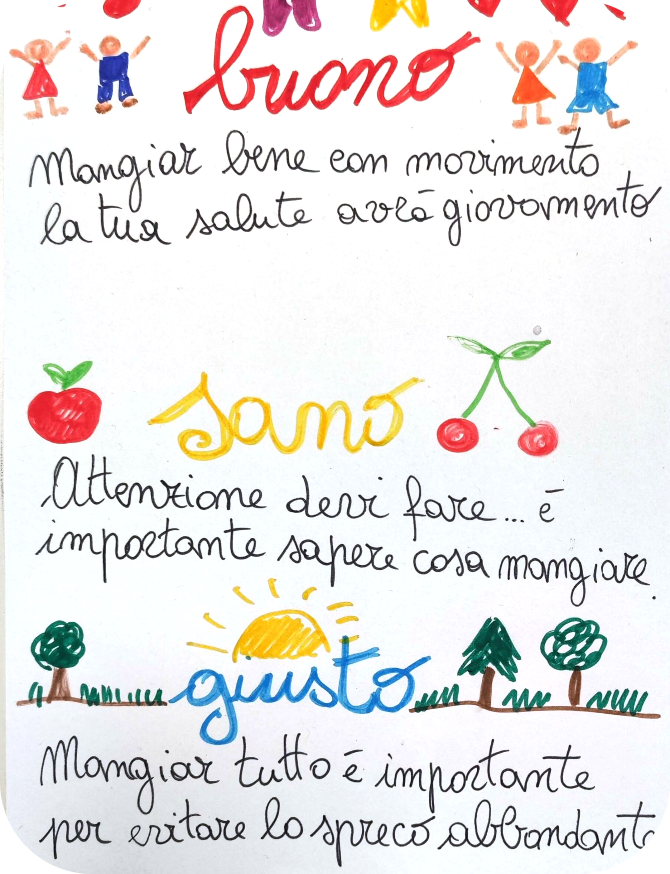 buono
Mangiar bene con movimento
la tua salute avrā giovamento
sano
Attenzione devi fare... ē
importante sapere cosa mangiare.
giusto
Mangiar tutto ē importante
per evitare lo spreco abbondante